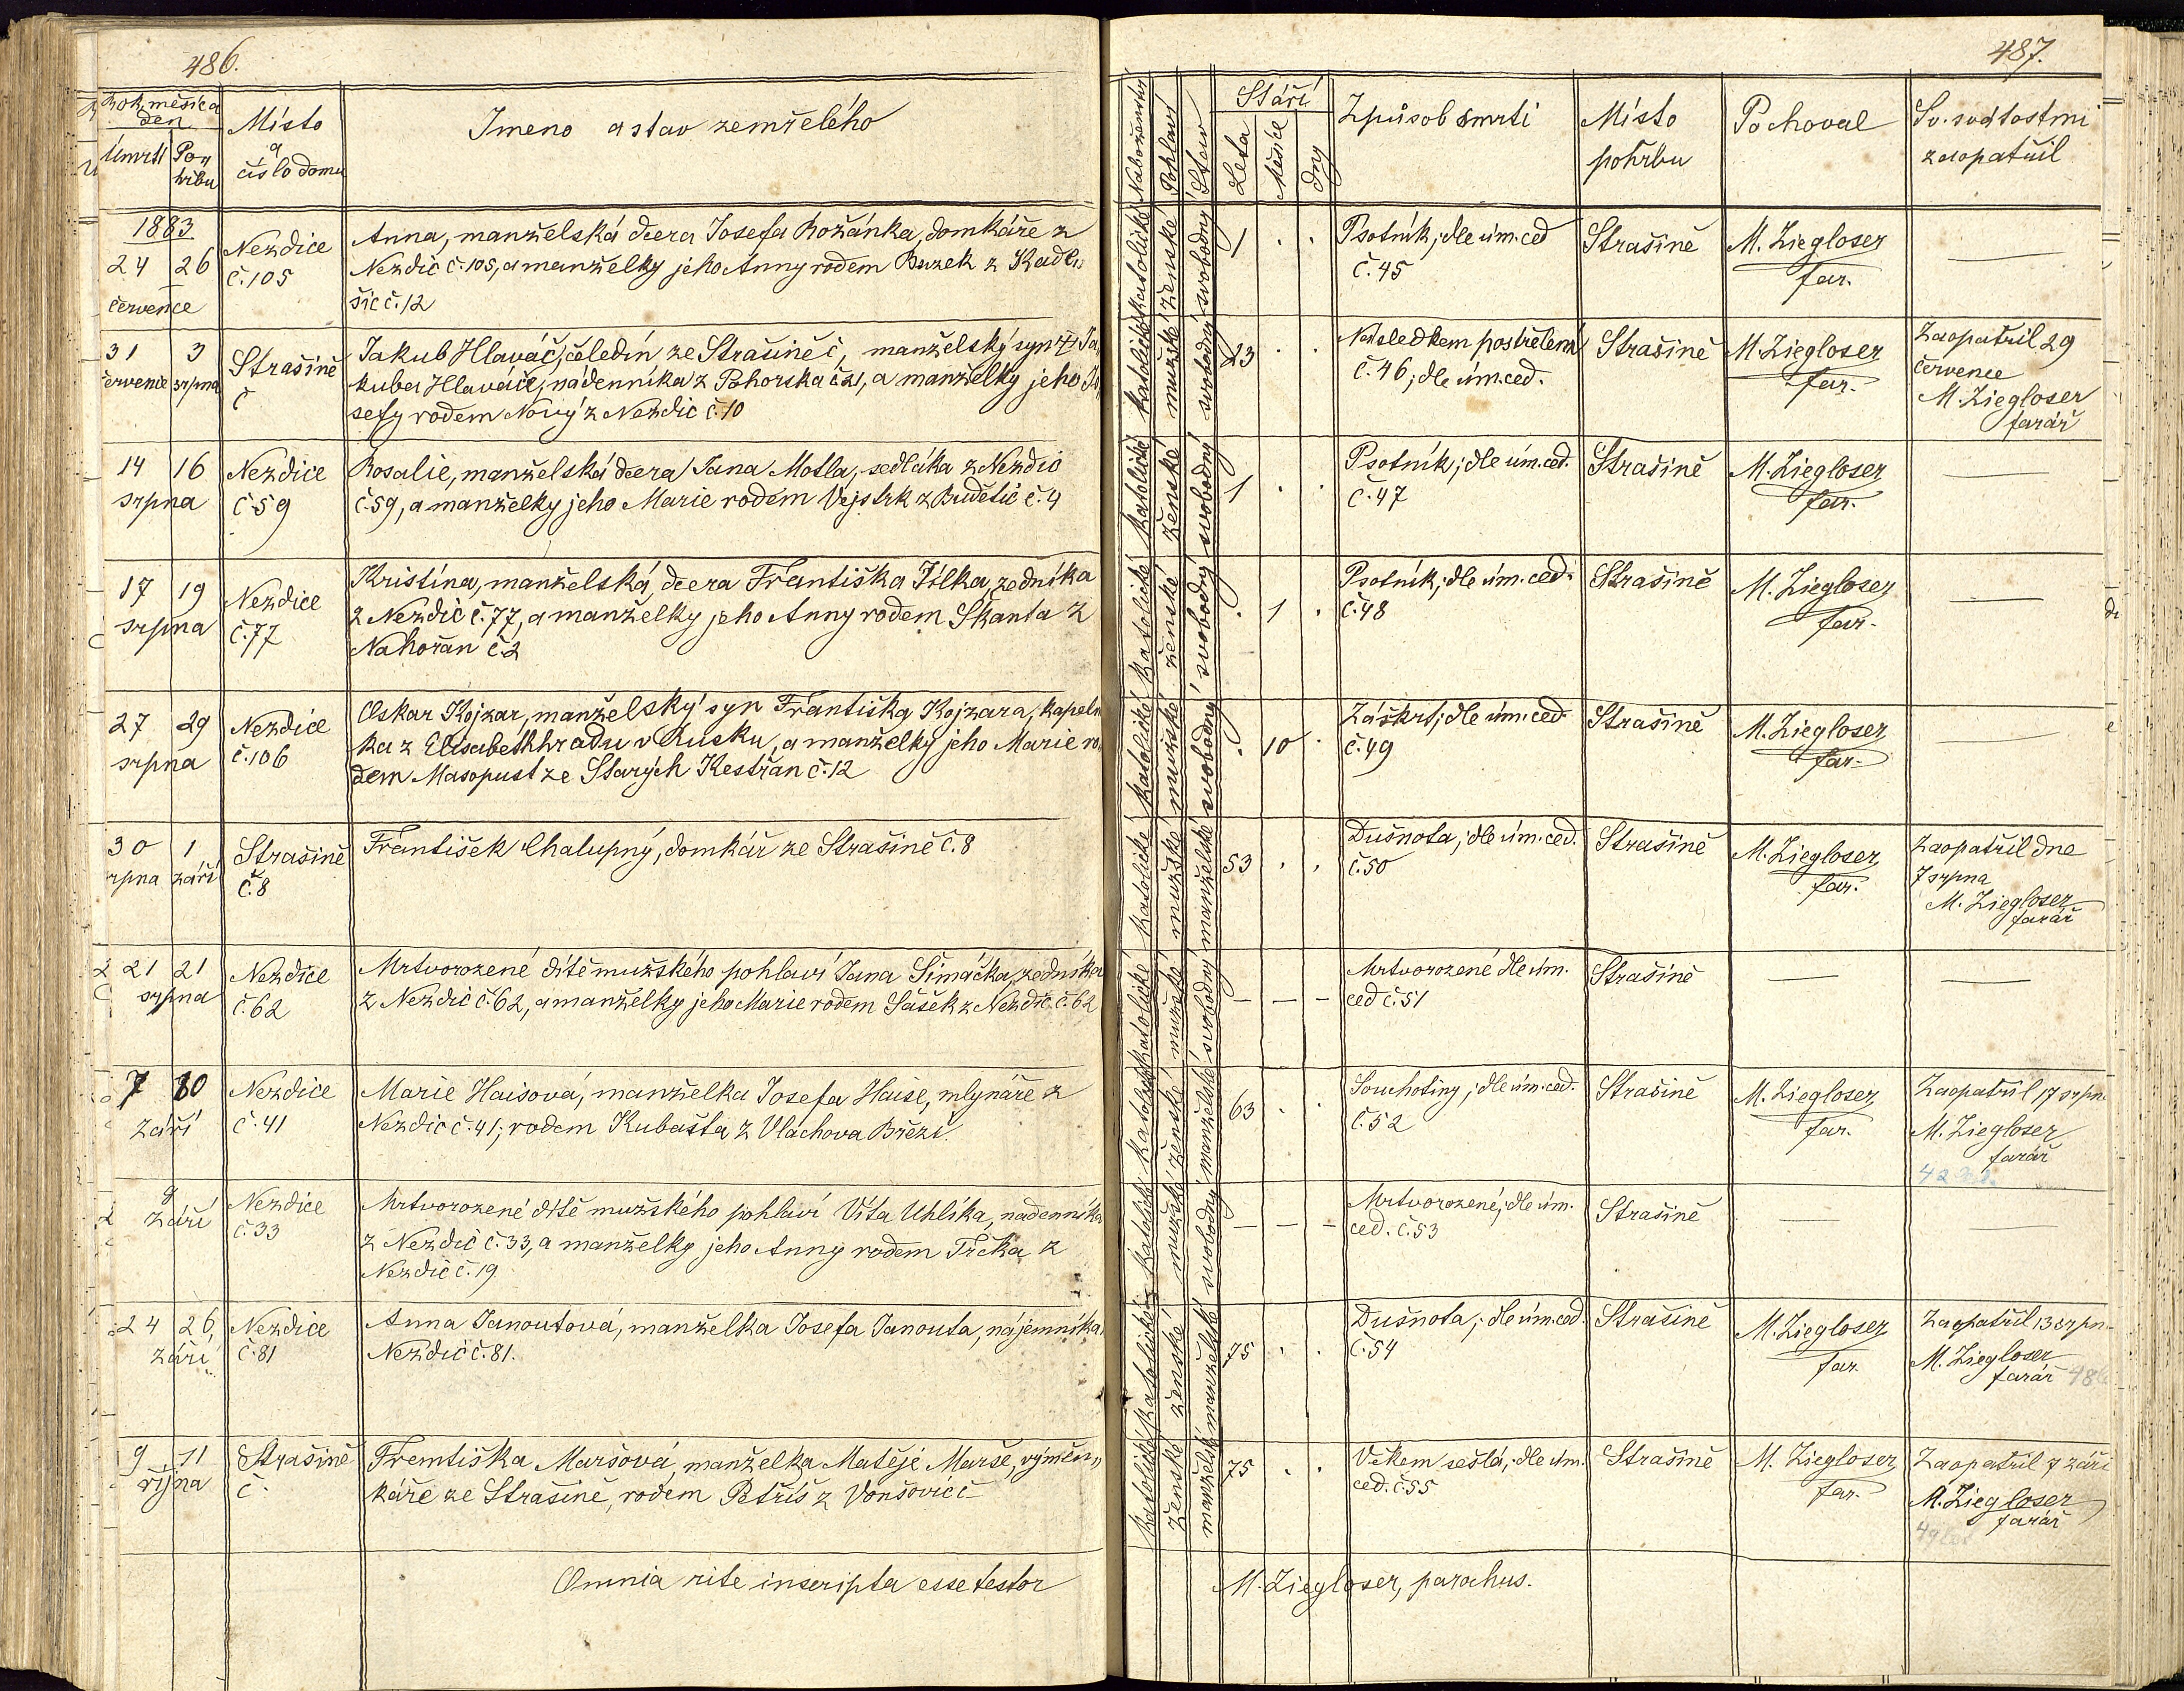 486.
Rok, měsíc a den
Úmrtí
Pohřbu
Místo a číslo domu
Jmeno a stav zemřelého
1883
24 26 července
Nezdice č. 105
Anna, manželská dcera Josefa Rožánka, domkáře z
Nezdic č. 105, a manželky jeho Anny rodem Buzek z Kadle„
šic č. 12
31 července 3 srpna
Strašině č
Jakub Hlaváč, čeledín ze Strašině č, manželský syn Ja„
kuba Hlaváče, nádenníka z Pohorska č 21, a manželky jeho Jo„
sefy rodem Nový z Nezdic č. 10
14 16 srpna
Nezdice č 59
Rosalie, manželská dcera Jana Motla, sedláka z Nezdic
č. 59, a manželky jeho Marie rodem Vejstrk z Budětic č. 4
17 19 srpna
Nezdice č. 77
Kristina, manželská, dcera Františka Jílka, zedníka
z Nezdic č. 77, a manželky jeho Anny rodem Skanta z
Nahořan č. 2
27 29 srpna
Nezdice č. 106
Oskar Kojzar, manželský syn Františka Kojzara, kapelní
ka z Elisabethhradu v Rusku, a manželky jeho Marie ro
dem Masopust ze Starých Kestřan č. 12
30 srpna 1 září
Strašině č. 8
František Chalupný, domkář ze Strašině č. 8
21 21 srpna
Nezdice č. 62
Mrtvorozené dítě mužského pohlaví Jana Šimáčka, zedníka
z Nezdic č. 62, a manželky jeho Marie rodem Šašek z Nezdic č. 62
7 10 září
Nezdice č. 41
Marie Haisová, manželka Josefa Haise, mlynáře z
Nezdic č. 41; rodem Kubašta z Vlachova Březí.
9 září
Nezdice č. 33
Mrtvorozené dítě mužského pohlaví Víta Uhlíka, nádenníka
z Nezdic č. 33, a manželky jeho Anny rodem Trčka z
Nezdic č. 19
24 26 září
Nezdice č. 81
Anna Janoutová, manželka Josefa Janouta, nájemníka
Nezdic č. 81.
9 11 října
Strašině č.
Františka Maršová, manželka Matěje Marše, výměn„
káře ze Strašině, rodem Petřís z Vonšovic č
Omnia rite inscripta esse testor
487.
Náboženství
Pohlaví
Stav
Stáří
Léta
Měsíce
Dny
Způsob smrti
Místo pohřbu
Pochoval
Sv. svátostmi zaopatřil
katolické ženské svobodný
1 . .
Psotník; dle úm. ced
č. 45
Strašině
M. Ziegloser
far.
—
katolické mužské svobodný
23 . .
Následkem postřelení
č. 46; dle úm. ced.
Strašině
M. Ziegloser
far.
Zaopatřil 29
července
M. Ziegloser
farář
katolické ženské svobodný
1 . .
Psotník; dle úm. ced.
č. 47
Strašině
M. Ziegloser
far.
—
katolické ženské svobodný
. 1 .
Psotník; dle úm. ced.
č. 48
Strašině
M. Ziegloser
far.
—
katolické mužské svobodný
. 10 .
Záškrt; dle úm. ced
č. 49
Strašině
M. Ziegloser
far.
—
katolické mužské manželské
53 . .
Dušnota; dle úm. ced.
č. 50
Strašině
M. Ziegloser
far.
Zaopatřil dne
7 srpna
M. Ziegloser
farář
katolické mužské svobodný
— — —
Mrtvorozené dle úm.
ced č. 51
Strašině
—
—
katolické ženské manželské
63 . .
Souchotiny; dle úm. ced.
č. 52
Strašině
M. Ziegloser
far.
Zaopatřil 17 srpn.
M. Ziegloser
farář
katolické mužské svobodný
— — —
Mrtvorozené; dle úm.
ced. č. 53
Strašině
—
—
katolické ženské manželské
75 . .
Dušnota; dle úm. ced.
č. 54
Strašině
M. Ziegloser
far.
Zaopatřil 13 srpn.
M. Ziegloser
farář
katolické ženské manželské
75 . .
Věkem sešlá; dle úm.
ced. č. 55
Strašině
M. Ziegloser
far.
Zaopatřil 7 září
M. Ziegloser
farář
M. Ziegloser, parochus.